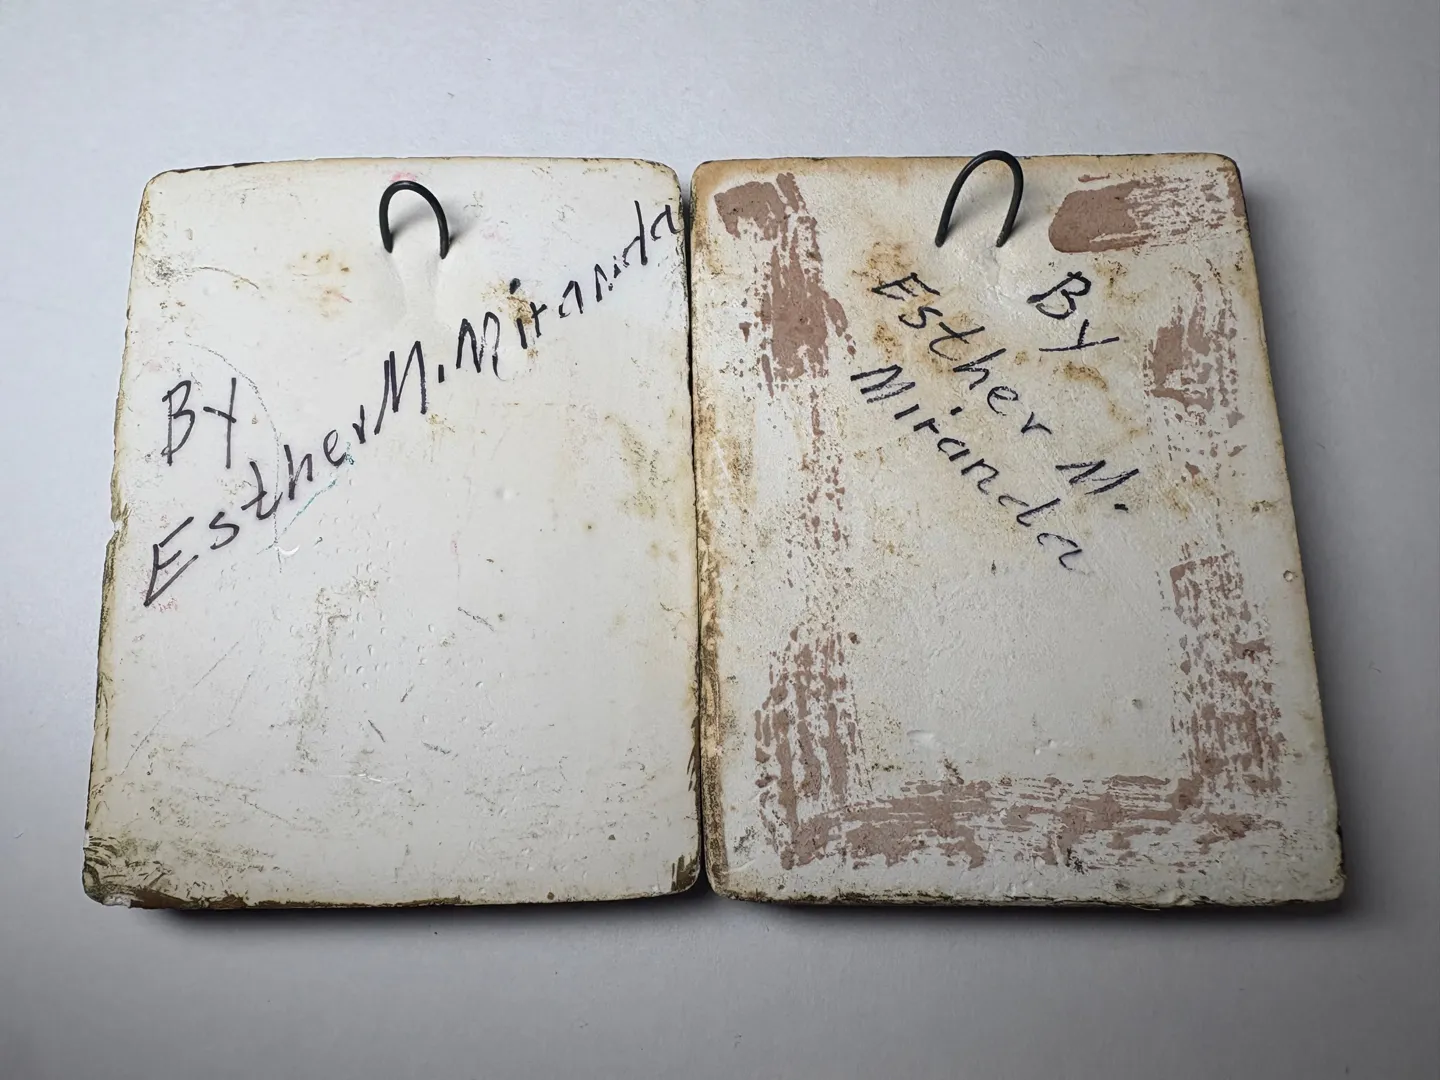 By
Esther M. Miranda
By
Esther M.
Miranda